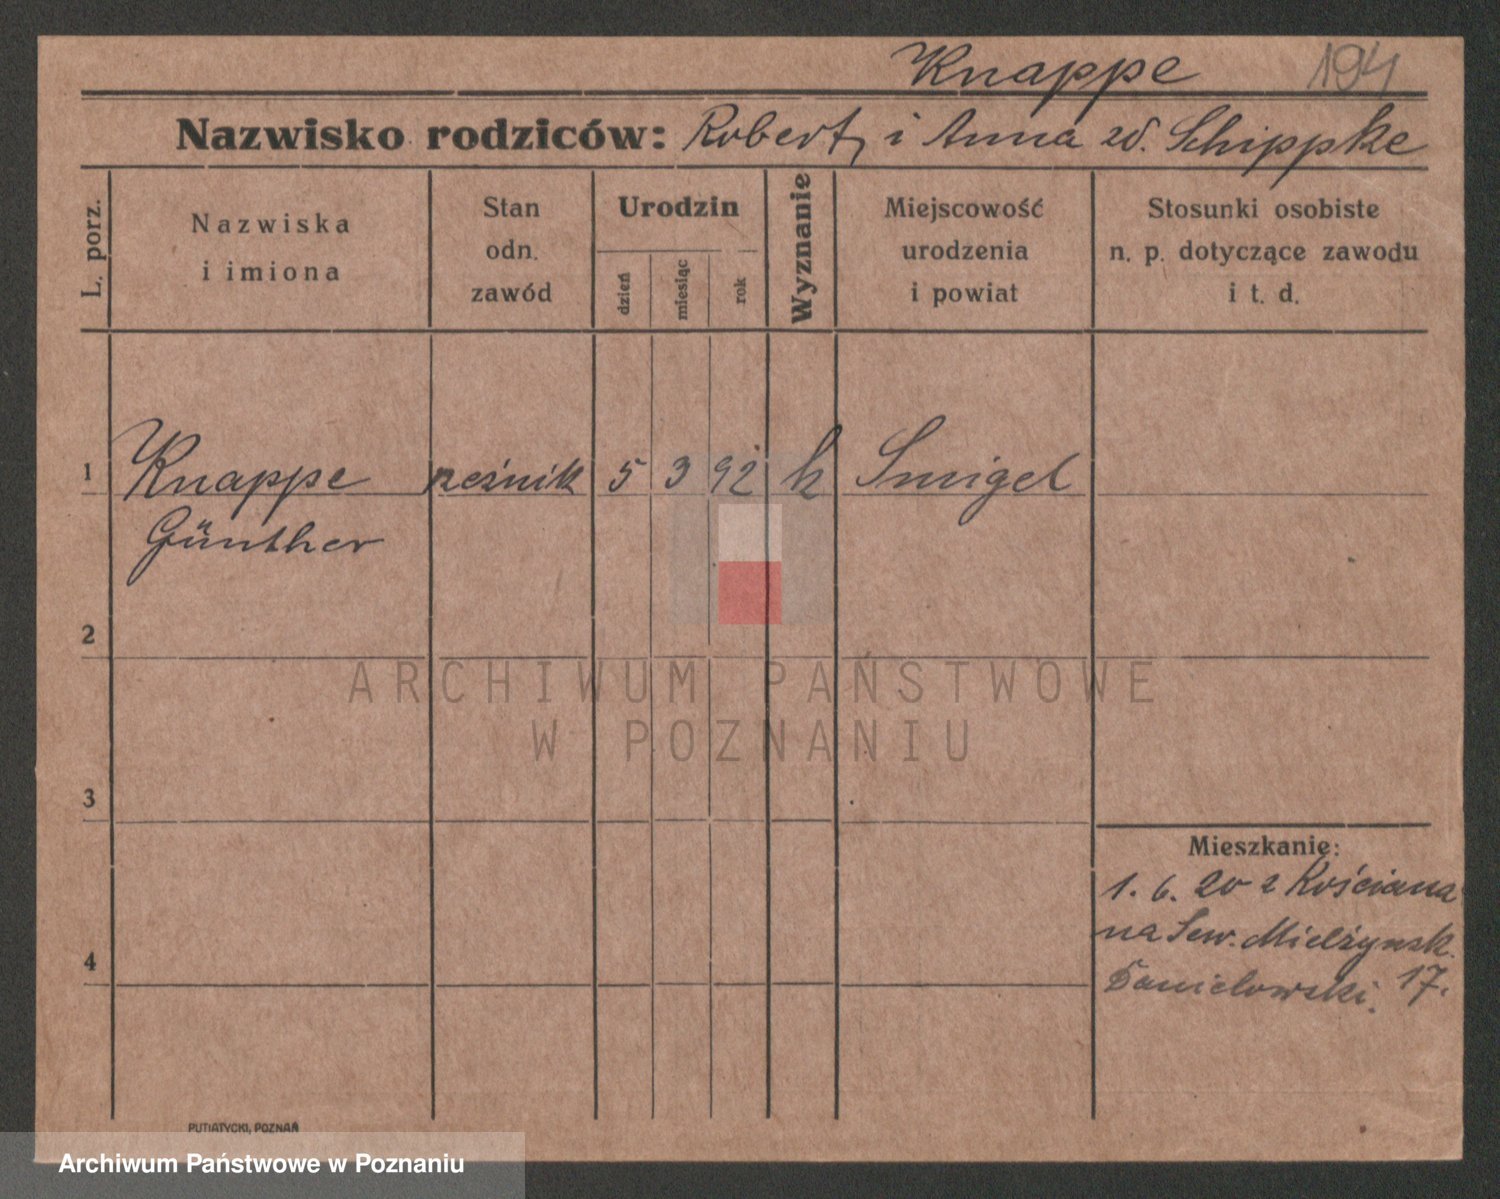 Knappe 194
Nazwisko rodziców: Robert, i Anna zd. Schippke
L. porz.
Nazwiska
i imiona
Stan
odn.
zawód
Urodzin
dzień
miesiąc
rok
Wyznanie
Miejscowość
urodzenia
i powiat
Stosunki osobiste
n. p. dotyczące zawodu
i t. d.
1 Knappe rzeźnik 5 3 92 k Smigel
Günther
2
ARCHIWUM PAŃSTWOWE
W POZNANIU
3
Mieszkanie:
1. 6. 20 z Kościana
na Sew. Mielżynsk.
Danielowski. 17.
4
PUTIATYCKI, POZNAŃ
Archiwum Państwowe w Poznaniu